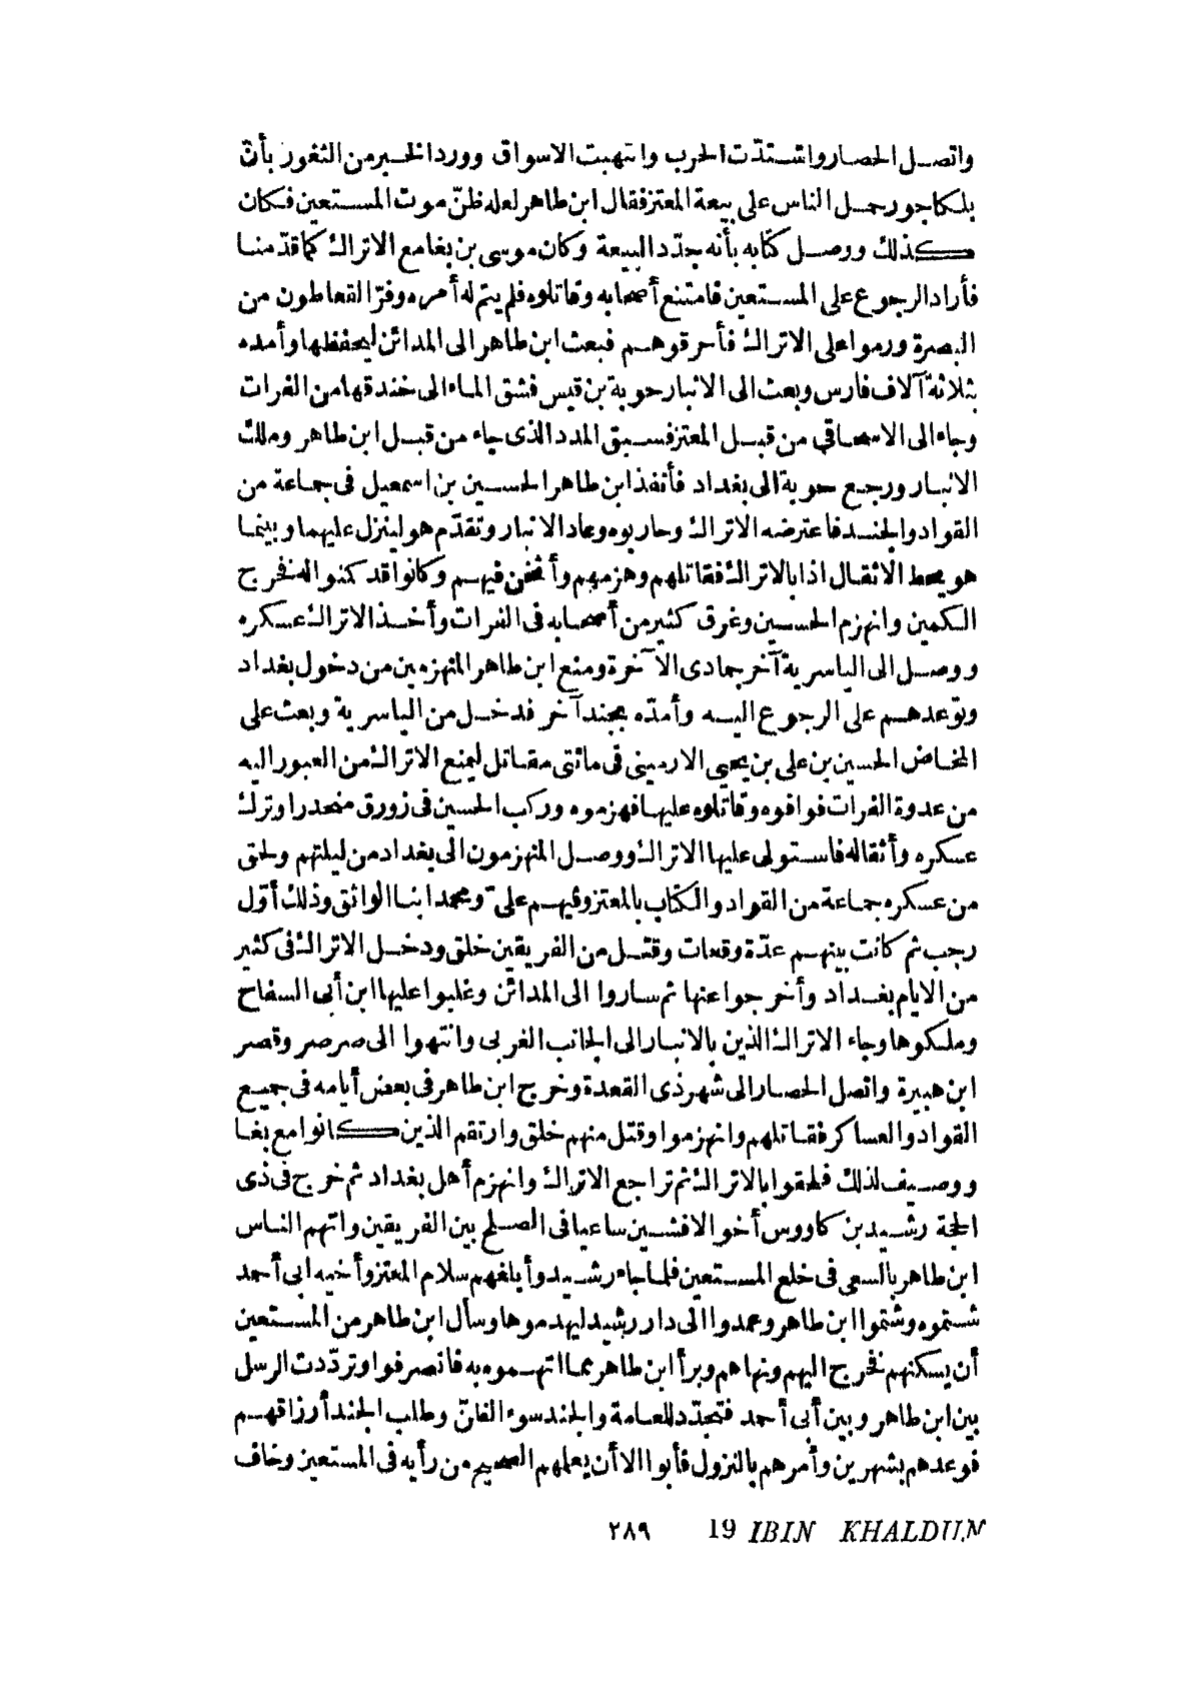 واتصل الحصار واشتدّت الحرب وانتهبت الاسواق وورد الخبر من الثغور بأنّ
بلكاجور حمل الناس على بيعة المعتز فقال ابن طاهر لعله ظنّ موت المستعين فكان
كذلك ووصل كتابه بأنه جدّد البيعة وكان موسى بن بغا مع الاتراك كما قدّمنا
فأراد الرجوع على المستعين فامتنع أصحابه وقاتلوه فلم يتم له أمره وفرّ القعاطون من
البصرة ورموا على الاتراك فأحرقوهم فبعث ابن طاهر الى المدائن ليحفظها وأمده
بثلاثة آلاف فارس وبعث الى الانبار حوبة بن قيس فشق الماء الى خندقها من الفرات
وجاء الى الاسحاقي من قبل المعتز فسبق المدد الذى جاء من قبل ابن طاهر وملك
الانبار ورجع حوبة الى بغداد فأنفذ ابن طاهر الحسين بن اسمعيل فى جماعة من
القواد والجند فاعترضه الاتراك وحاربوه وعاد الانبار وتقدّم هو لينزل عليهما وبينما
هو يحط الاثقال اذا بالاتراك فقاتلهم وهزمهم وأثخن فيهم وكانوا قد كمنوا له فخرج
الكمين وانهزم الحسين وغرق كثير من أصحابه فى الفرات وأخذ الاتراك عسكره
ووصل الى الياسرية آخر جمادى الآخرة ومنع ابن طاهر المنهزمين من دخول بغداد
وتوعدهم على الرجوع اليه وأمدّه بجند آخر فدخل من الياسرية وبعث على
المخاض الحسين بن على بن يحيى الارمينى فى مائتى مقاتل ليمنع الاتراك من العبور اليه
من عدوة الفرات فوافوه وقاتلوه عليها فهزموه وركب الحسين فى زورق منحدرا وترك
عسكره وأثقاله فاستولى عليها الاتراك ووصل المنهزمون الى بغداد من ليلتهم ولحق
من عسكره جماعة من القواد والكتاب بالمعتز وفيهم علىّ ومحمد ابنا الواثق وذلك أوّل
رجب ثم كانت بينهم عدّة وقعات وقتل من الفريقين خلق ودخل الاتراك فى كثير
من الايام بغداد وأخرجوا عنها ثم ساروا الى المدائن وغلبوا عليها ابن أبى السفاح
وملكوها وجاء الاتراك الذين بالانبار الى الجانب الغربى وانتهوا الى صرصر وقصر
ابن هبيرة واتصل الحصار الى شهر ذى القعدة وخرج ابن طاهر فى بعض أيامه فى جميع
القواد والعساكر فقاتلهم وانهزموا وقتل منهم خلق وارتقم الذين كانوا مع بغا
ووصيف لذلك فلحقوا بالاتراك ثم تراجع الاتراك وانهزم أهل بغداد ثم خرج فى ذى
الحجة رشيد بن كاووس أخو الافشين ساعيا فى الصلح بين الفريقين واتهم الناس
ابن طاهر بالسعى فى خلع المستعين فلما جاء رشيد وأبلغهم سلام المعتز وأخيه ابى أحمد
شتموه وشتموا ابن طاهر وعمدوا الى دار رشيد ليهدموها وسأل ابن طاهر من المستعين
أن يسكنهم فخرج اليهم ونهاهم وبرأ ابن طاهر مما اتهموه به فانصرفوا وتردّدت الرسل
بين ابن طاهر وبين أبى أحمد فتجدّد للعامة والجند سوء الظنّ وطلب الجند أرزاقهم
فوعدهم بشهرين وأمرهم بالنزول فأبوا الا أن يعلمهم الصحيح من رأيه فى المستعين وخاف
٢٨٩ 19 IBIN KHALDUN